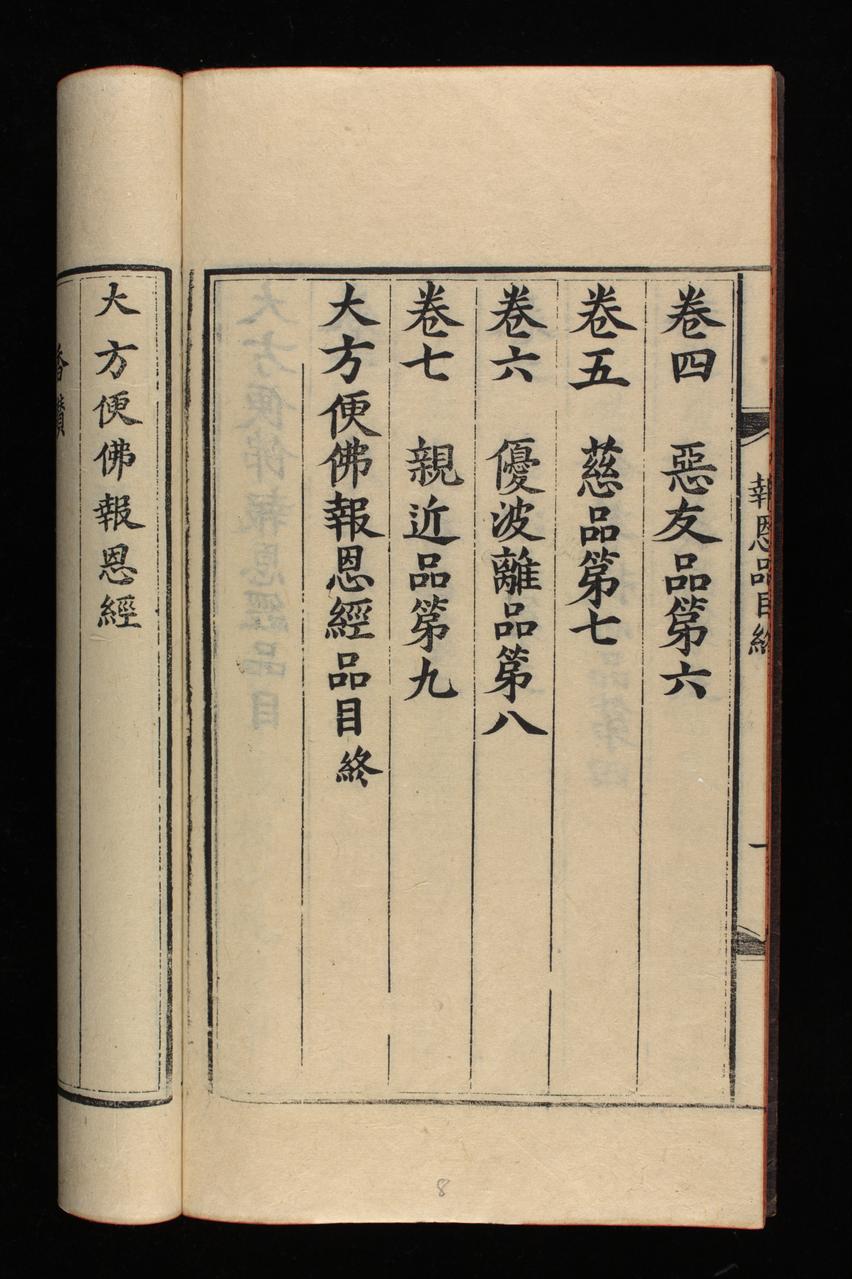 報恩品目終
一
卷四　惡友品第六
卷五　慈品第七
卷六　優波離品第八
卷七　親近品第九
大方便佛報恩經品目終
大方便佛報恩經
香讚
8